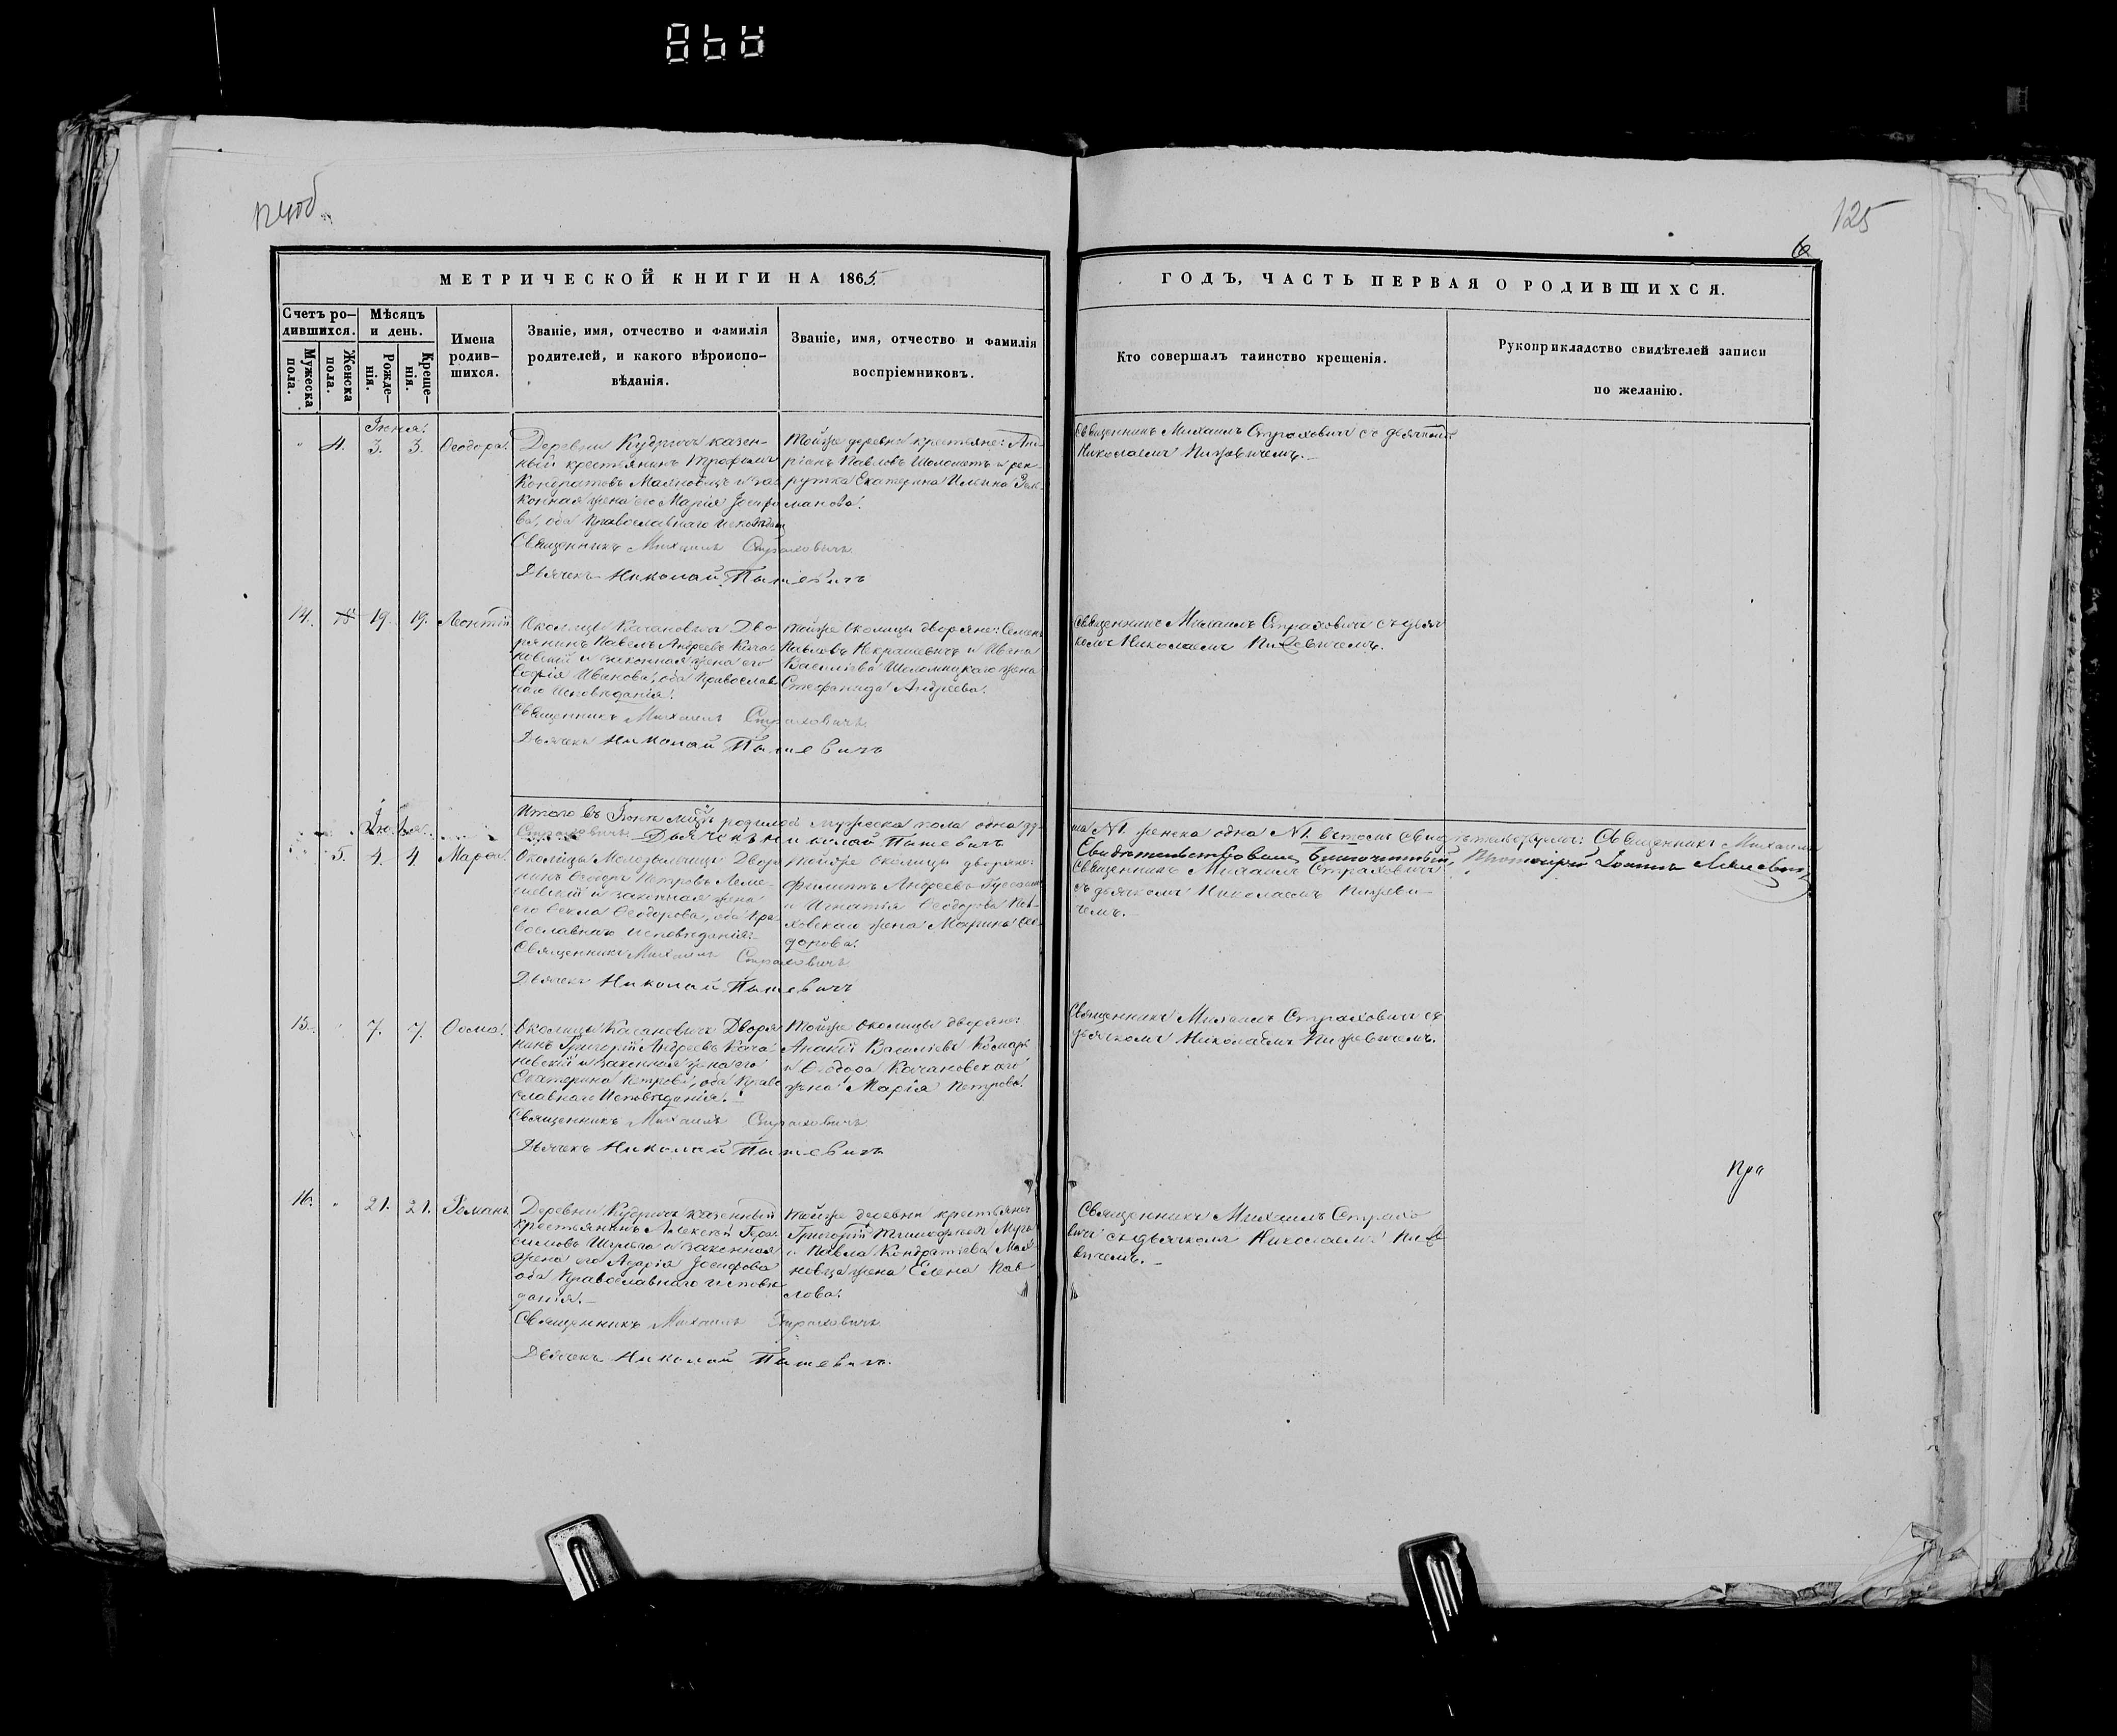 124об
125
6
МЕТРИЧЕСКОЙ КНИГИ НА 1865.
ГОДЪ, ЧАСТЬ ПЕРВАЯ О РОДИВШИХСЯ.
Счетъ ро-
дившихся.
Мужеска
пола.
Женска
пола.
Мѣсяцъ
и день.
Рожде-
нія.
Креще-
нія.
Имена
родив-
шихся.
Званіе, имя, отчество и фамилія
родителей, и какого вѣроиспо-
вѣданія.
Званіе, имя, отчество и фамилія
воспріемниковъ.
Кто совершалъ таинство крещенія.
Рукоприкладство свидѣтелей записи
по желанію.
Іюня.
4. 3. 3. Ѳеодора.
Деревни Кудричъ казен-
ный крестьянинъ Трофимъ
Кондратовъ Маляновецъ и за-
конная жена его Марія Іосифо
ва, оба Православнаго исповѣдан
Священникъ Михаилъ Страховичъ
Дьячекъ Николай Пыжевичъ
Тойже деревни крестьяне: Анд-
ріанъ Павловъ и рек-
рутка Екатерина Ильина
манова.
Священникъ Михаилъ Страховичъ съ дьячкомъ
Николаемъ Пыжевичемъ.
14. 19. 19. Леонтій
Околицы Качановичъ Дво
рянинъ Павелъ Андреевъ Кача-
новскій и законная жена его
Софія Иванова, оба Православ
наго Исповѣданія.
Священникъ Михаилъ Страховичъ
Дьячекъ Николай Пыжевичъ
Тойже Околицы дворяне: Семенъ
Павловъ Некрашевичъ и Ивана
Василіева Шоломицкаго жена
Стефанида Андреева.
Священникъ Михаилъ Страховичъ съ дьяч
комъ Николаемъ Пыжевичемъ.
Итого въ Іюнѣ мцѣ родилось мужеска пола одна ду-
ша №1. женска одна №1. въ томъ свидѣтельствуемъ: Священникъ Михаилъ
Страховичъ Дьячекъ Николай Пыжевичъ
Свидѣтельствовалъ Благочинный, Протоіерей Іоаннъ
Іюля.
5. 4. 4. Марѳа.
Околицы Дворя
нинъ Ѳеодоръ Петровъ
и законная жена
его Ѳекла Ѳеодорова, оба Пра
вославнаго исповѣданія.
Священникъ Михаилъ Страховичъ
Дьячекъ Николай Пыжевичъ
Тойже Околицы дворяне:
Филиппъ Андреевъ
и Игнатія Ѳеодорова
жена Марина
дорова.
Священникъ Михаилъ Страховичъ
съ дьячкомъ Николаемъ Пыжеви-
чемъ.
15. 7. 7. Ѳома.
Околицы Качановичъ Дворя
нинъ Григорій Андреевъ Кача-
новскій и законная жена его
Екатерина Петрова, оба Право
славнаго Исповѣданія.
Священникъ Михаилъ Страховичъ
Дьячекъ Николай Пыжевичъ
Тойже Околицы дворяне:
Ананій Василіевъ
и Ѳеодора Качановскаго
жена Марія Петрова.
Священникъ Михаилъ Страховичъ съ
дьячкомъ Николаемъ Пыжевичемъ.
16. 21. 21. Романъ
Деревни Кудричъ казенный
крестьянинъ Алексѣй Гера-
симовъ Шульга и законная
жена его Іосифова
оба Православнаго исповѣ
данія.
Священникъ Михаилъ Страховичъ
Дьячекъ Николай Пыжевичъ.
Тойже деревни крестьяне:
Григорій Тимофеевъ
и Павла Кондратіева Маля-
новца жена Елена Пав
лова.
Священникъ Михаилъ Страхо
вичъ съ дьячкомъ Николаемъ Пыже
вичемъ.